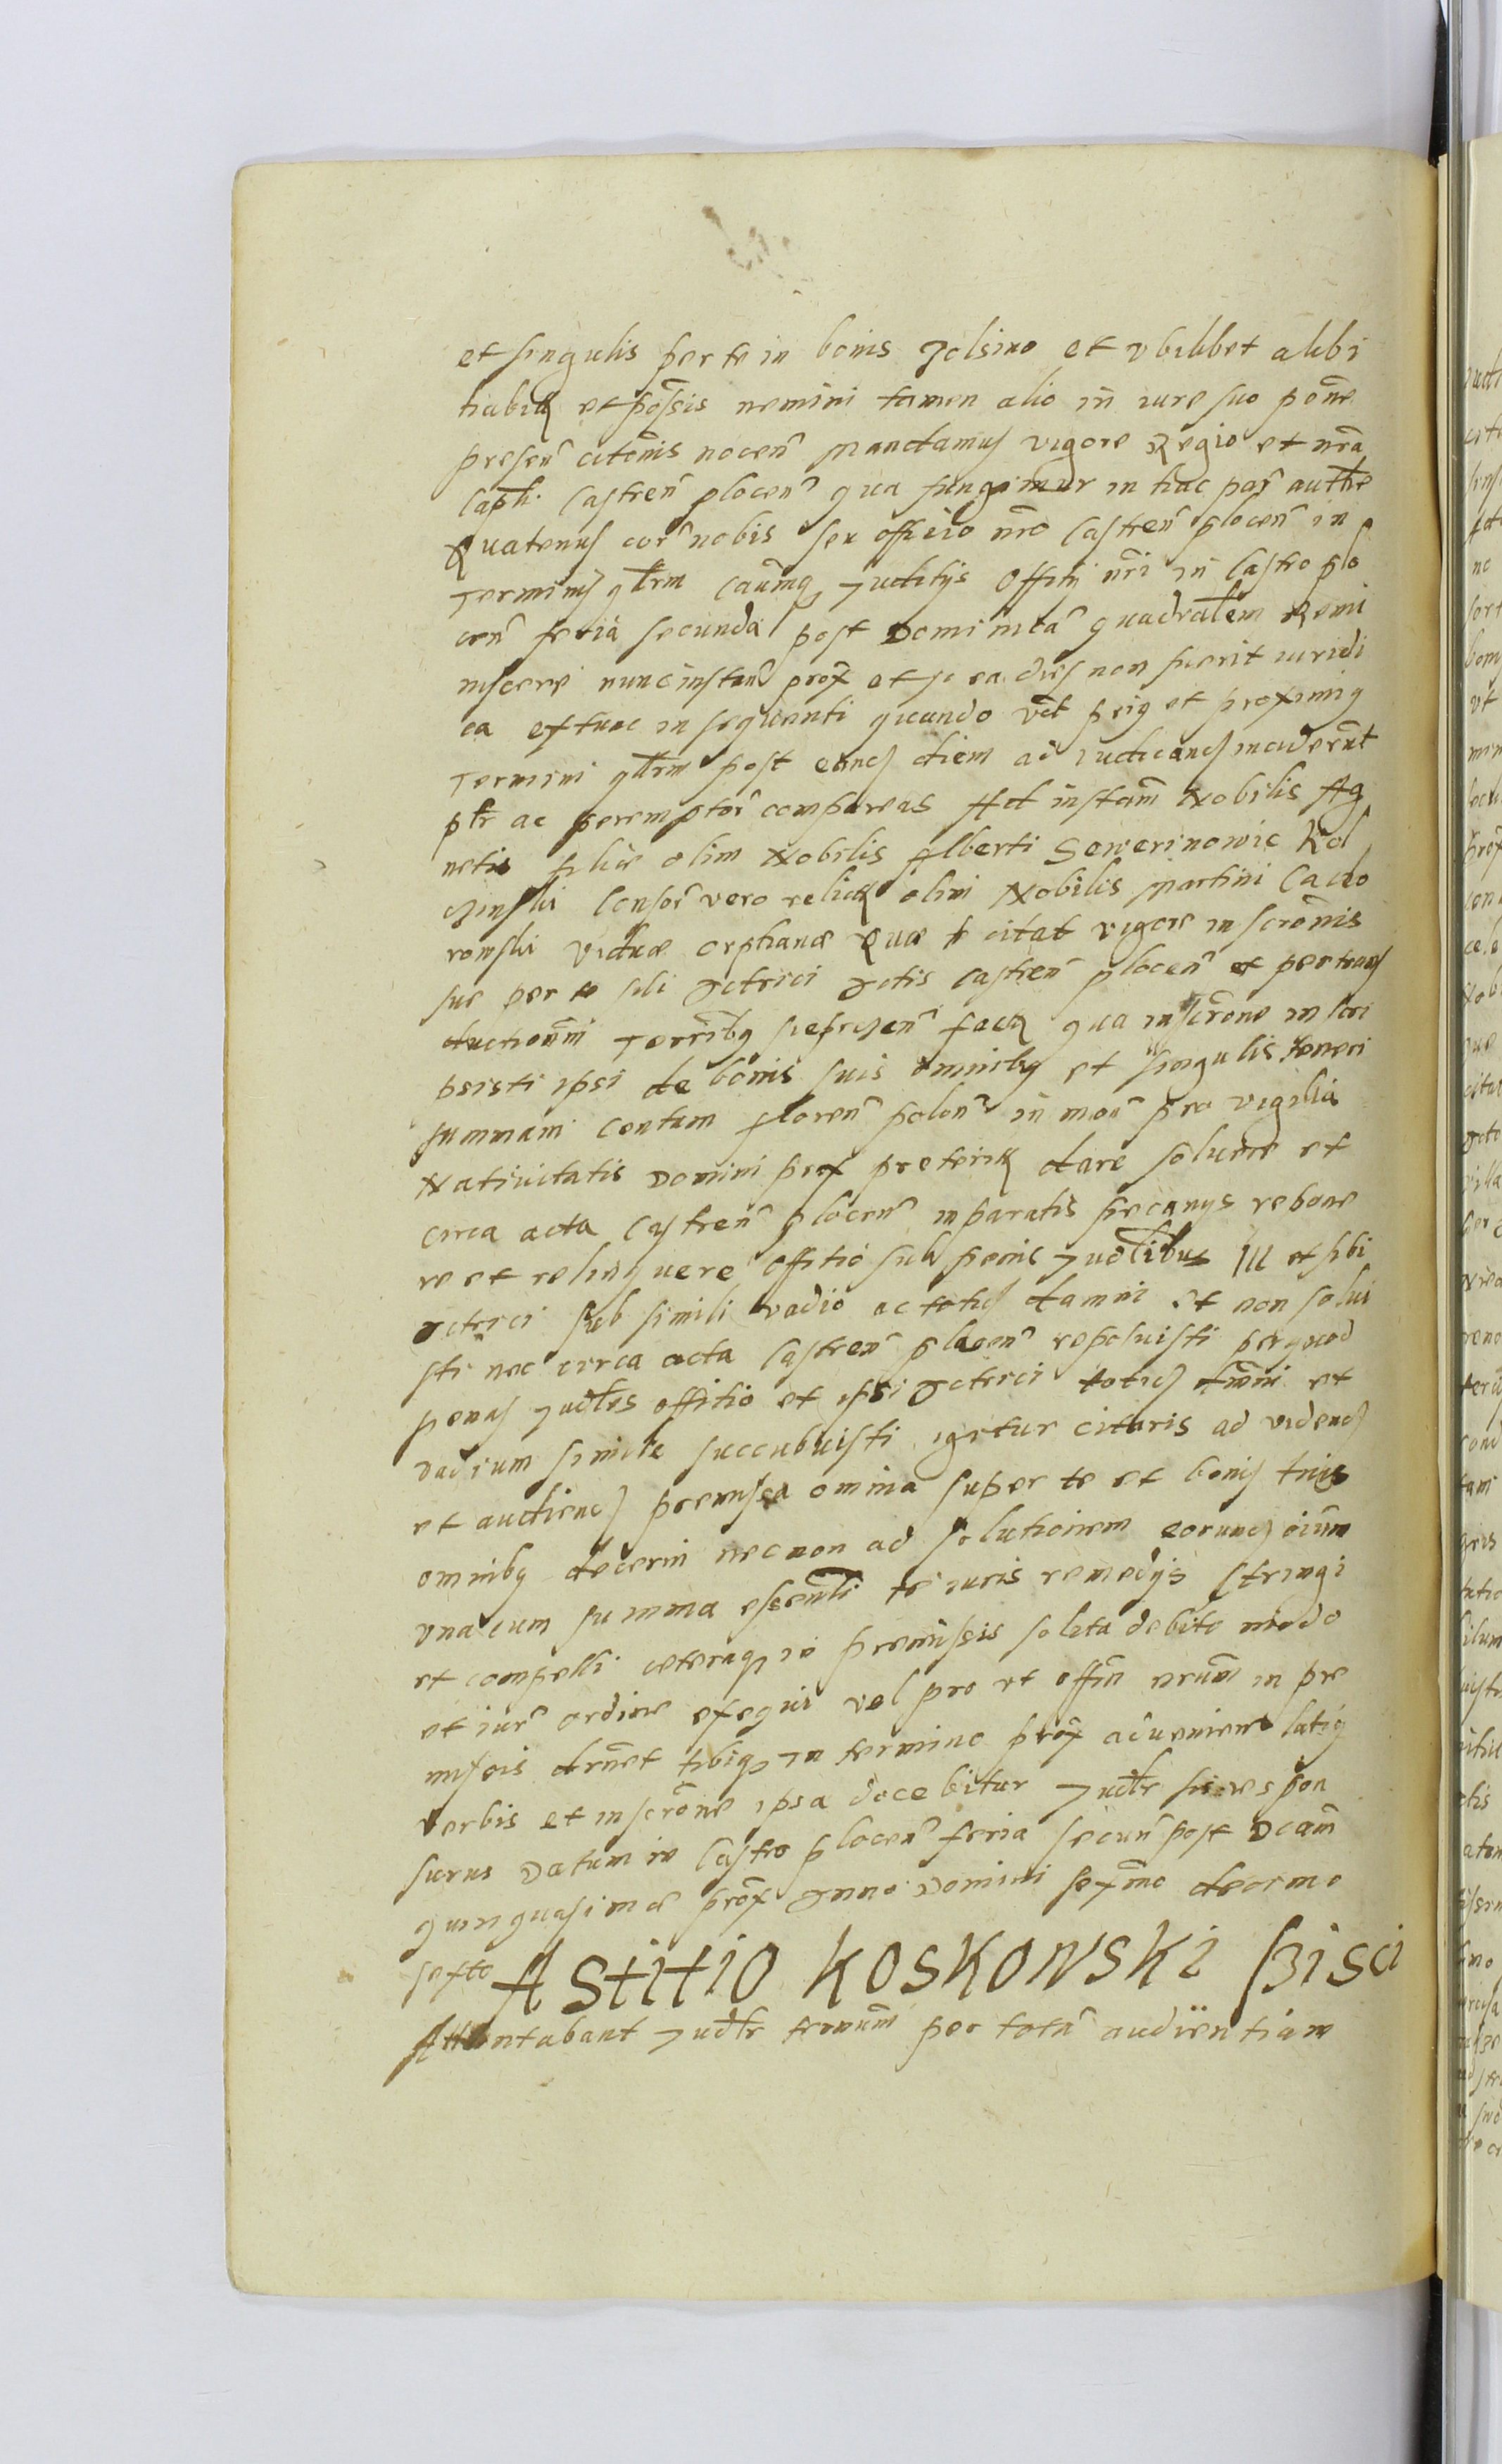 et singulis per te in bonis Jolsino et vbilibet alibi
habit et possis nemini tamen alio in iure suo pone
presen citonis nocen Mandamus vigore Regio et nra
Capli Castren plocen qua fungimur in hac par authe
Quatenus cor nobis seu officio nro Castren plocen in
Terminis qlrm causmq Juditys Offity nri in Castro plo
cen feria secunda post Dominica quadralem Remi
niscere nunc instan prox et si ea dies non fuerit iuridi
ca extunc in sequenti quando vtl priq et proximiq
Termini qlrm post eand diem ad iudicand inciderunt
plr ac peremptor compareas Ad instam Nobilis Ag
netis filiæ olim Nobilis Alberti Sewerinowic Kol
czinski Consor vero relict olim Nobilis Martini Cacko
rowski viduæ orphanæ Quæ te citat vigore inscronis
suæ per te sibi Actrici Actis Castren plocen et per trans
ductionem Terribq fact qua inscrone inscri
psisti ipsi de bonis suis omnibq et singulis teneri
summam centum floren polon in mon pro vigilia
Natiuitatis Domini prox preterit dare soluere et
circa acta Castren plocen inparatis pecunys repone
re et relinquere offitio sub penis Judlibus III et sibi
actrici sub simili vadio ac totid damni Et non solui
sti nec circa acta Castren plocen reposuisti perquod
penas Judles offitio et ipsi Actrici totid dmni et
vadium simile succubuisti igitur citaris ad vidend
et audiend premissa omnia super te et bonis tuis
omnibq decerni necnon ad solutionem eorund oium
vna cum summa essenli te iuris remedys stringi
et compelli ceteraq in premissis solita debito modo
et iur ordine exequi vel pro vt offm erum in pre
missis drnet tibiq in termino prox aduenien latiq
verbis et inscrone ipsa docebitur Judlr sis respon
surus Datum in Castro plocen feria secun post Dcam
quinquasimæ prox Anno Domini sexmo decimo
sexto Astitio KOSKOWSKI
Attentabant Judlr tronum per totu audientiam